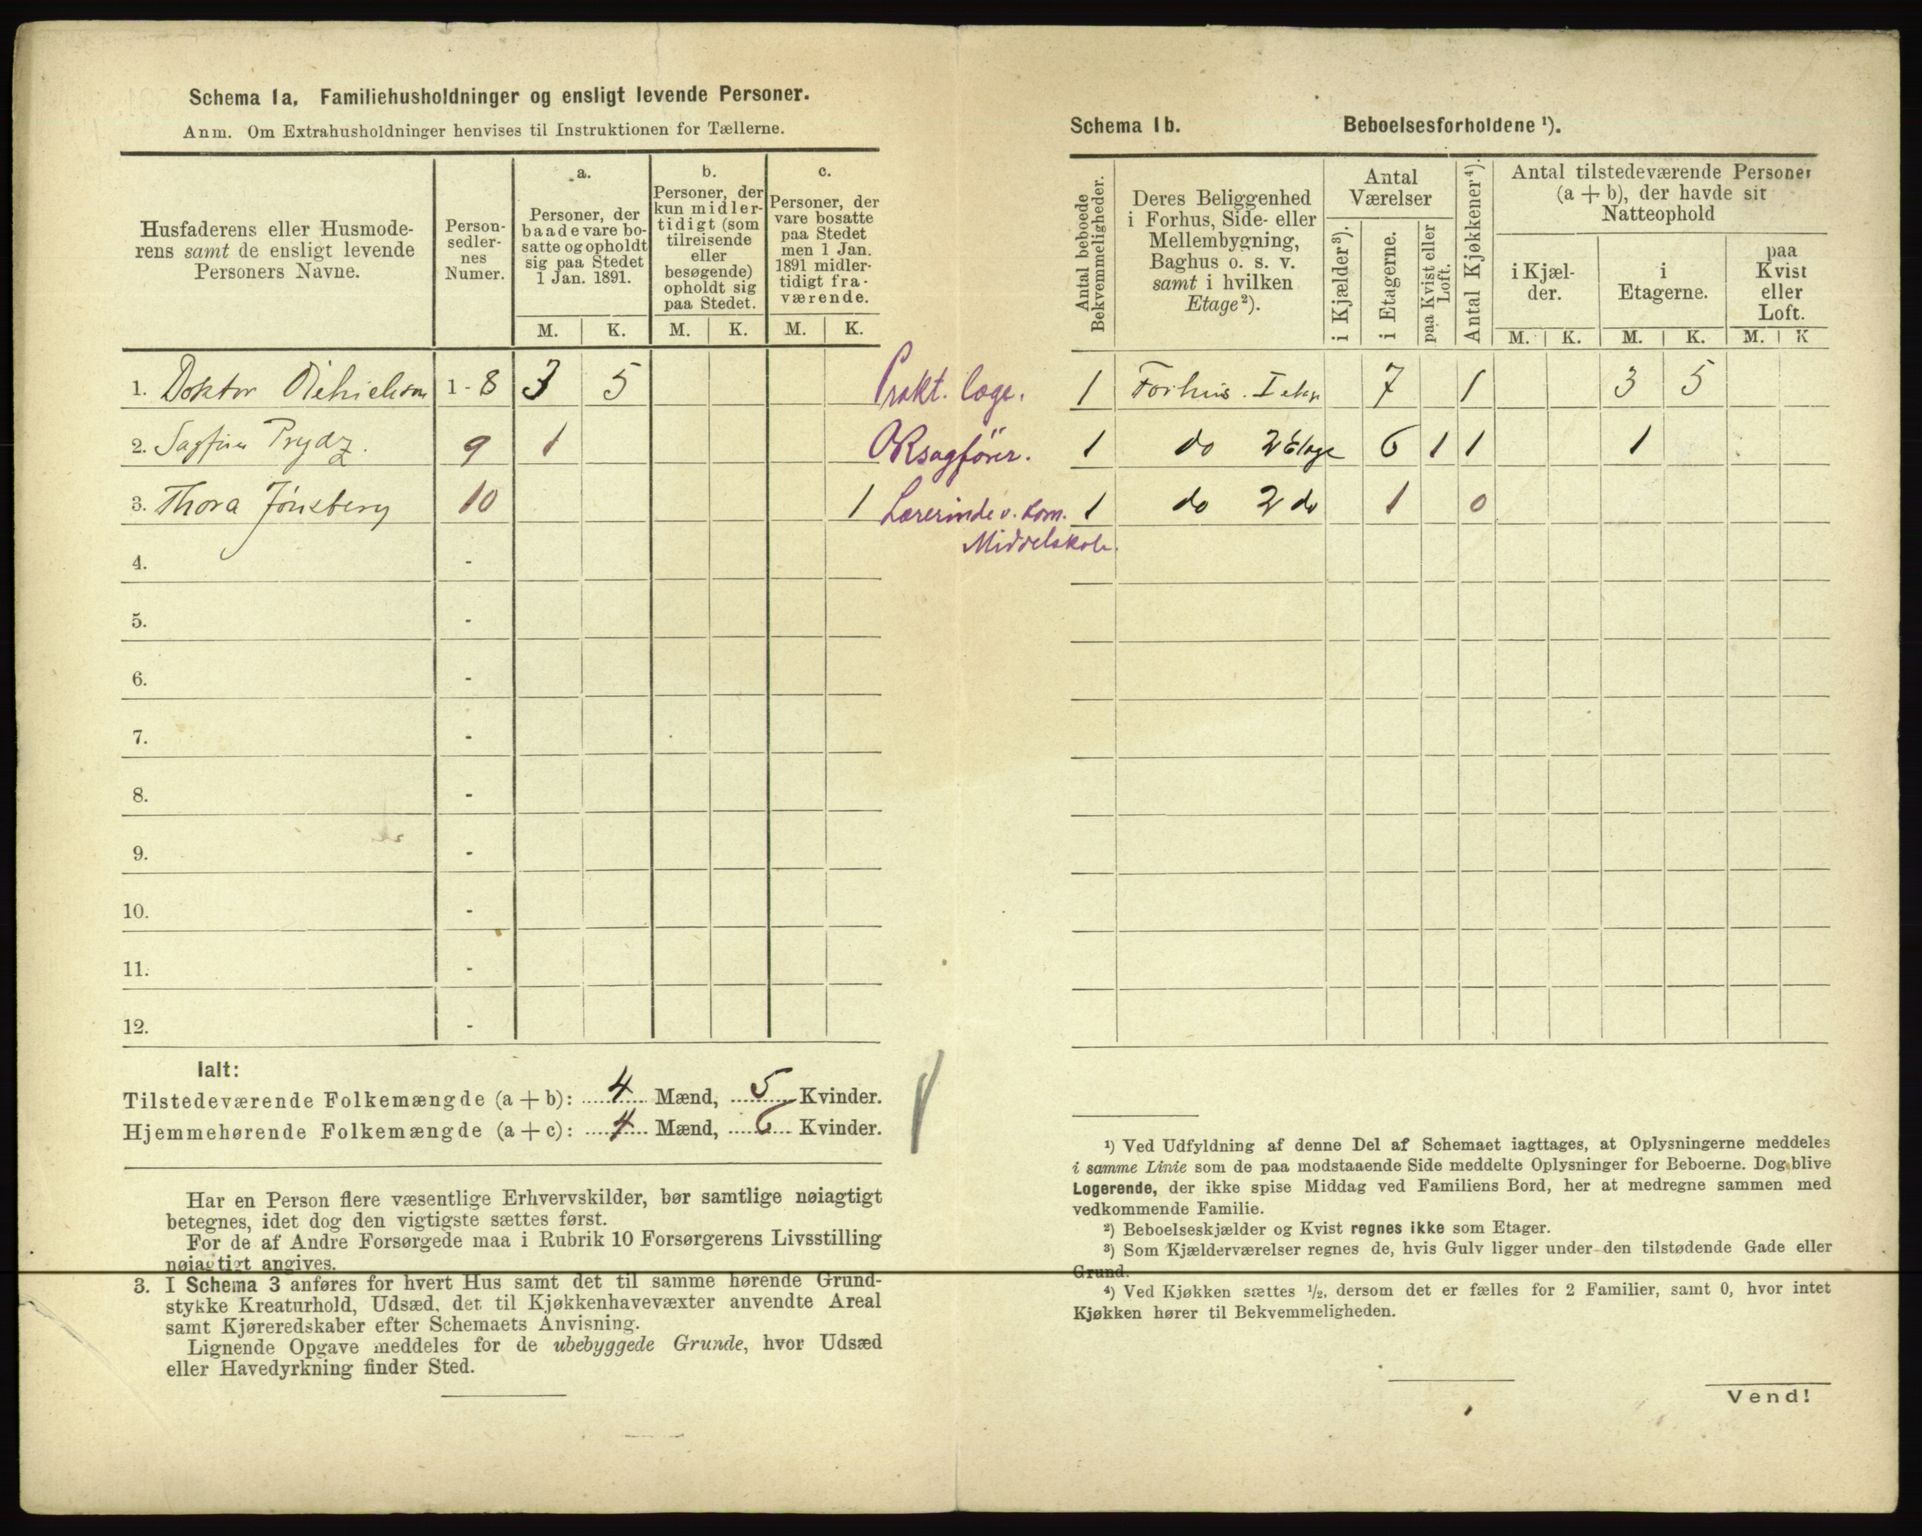 Schema 1a. Familiehusholdninger og ensligt levende Personer.
Anm. Om Extrahusholdninger henvises til Instruktionen for Tællerne.
Husfaderens eller Husmode-
rens samt de ensligt levende
Personers Navne.
Person-
sedler-
nes
Numer.
a.
Personer, der
baade vare bo-
satte og opholdt
sig paa Stedet
1 Jan. 1891.
b.
Personer, der
kun midler-
tidigt (som
tilreisende
eller
besøgende)
opholdt sig
paa Stedet.
c.
Personer, der
vare bosatte
paa Stedet
men 1 Jan.
1891 midler-
tidigt fra-
værende.
M. K. M. K. M. K.
1. Doktor 1-8 3 5 Prakt. læge.
2. Sagfører Prydz. 9 1 ORsagfører.
3. Thora Jónsberg 10 1 Lærerinde v. kom.
Middelskole.
4. -
5. -
6. -
7. -
8. -
9. -
10. -
11. -
12. -
Ialt:
Tilstedeværende Folkemængde (a + b): 4 Mænd, 5 Kvinder.
Hjemmehørende Folkemængde (a + c): 4 Mænd, 6 Kvinder.
Har en Person flere væsentlige Erhvervskilder, bør samtlige nøiagtigt
betegnes, idet dog den vigtigste sættes først.
For de af Andre Forsørgede maa i Rubrik 10 Forsørgerens Livsstilling
nøiagtigt angives.
3. I Schema 3 anføres for hvert Hus samt det til samme hørende Grund-
stykke Kreaturhold, Udsæd, det til Kjøkkenhavevæxter anvendte Areal
samt Kjøreredskaber efter Schemaets Anvisning.
Lignende Opgave meddeles for de ubebyggede Grunde, hvor Udsæd
eller Havedyrkning finder Sted.
Schema 1b. Beboelsesforholdene ¹).
Antal beboede
Bekvemmeligheder.
Deres Beliggenhed
i Forhus, Side- eller
Mellembygning,
Baghus o. s. v.
samt i hvilken
Etage²).
Antal
Værelser
i Kjælder³).
i Etagerne.
paa Kvist eller
Loft.
Antal Kjøkkener⁴).
Antal tilstedeværende Personer
(a + b), der havde sit
Natteophold
i Kjæl-
der.
i
Etagerne.
paa
Kvist
eller
Loft.
M. K. M. K. M. K
1 Forhus. I etg 7 1 3 5
1 do 2 Etage 6 1 1 1
1 do 2 do 1 0
¹) Ved Udfyldning af denne Del af Schemaet iagttages, at Oplysningerne meddeles
i samme Linie som de paa modstaaende Side meddelte Oplysninger for Beboerne. Dog blive
Logerende, der ikke spise Middag ved Familiens Bord, her at medregne sammen med
vedkommende Familie.
²) Beboelseskjælder og Kvist regnes ikke som Etager.
³) Som Kjælderværelser regnes de, hvis Gulv ligger under den tilstødende Gade eller
Grund.
⁴) Ved Kjøkken sættes ½, dersom det er fælles for 2 Familier, samt 0, hvor intet
Kjøkken hører til Bekvemmeligheden.
Vend!